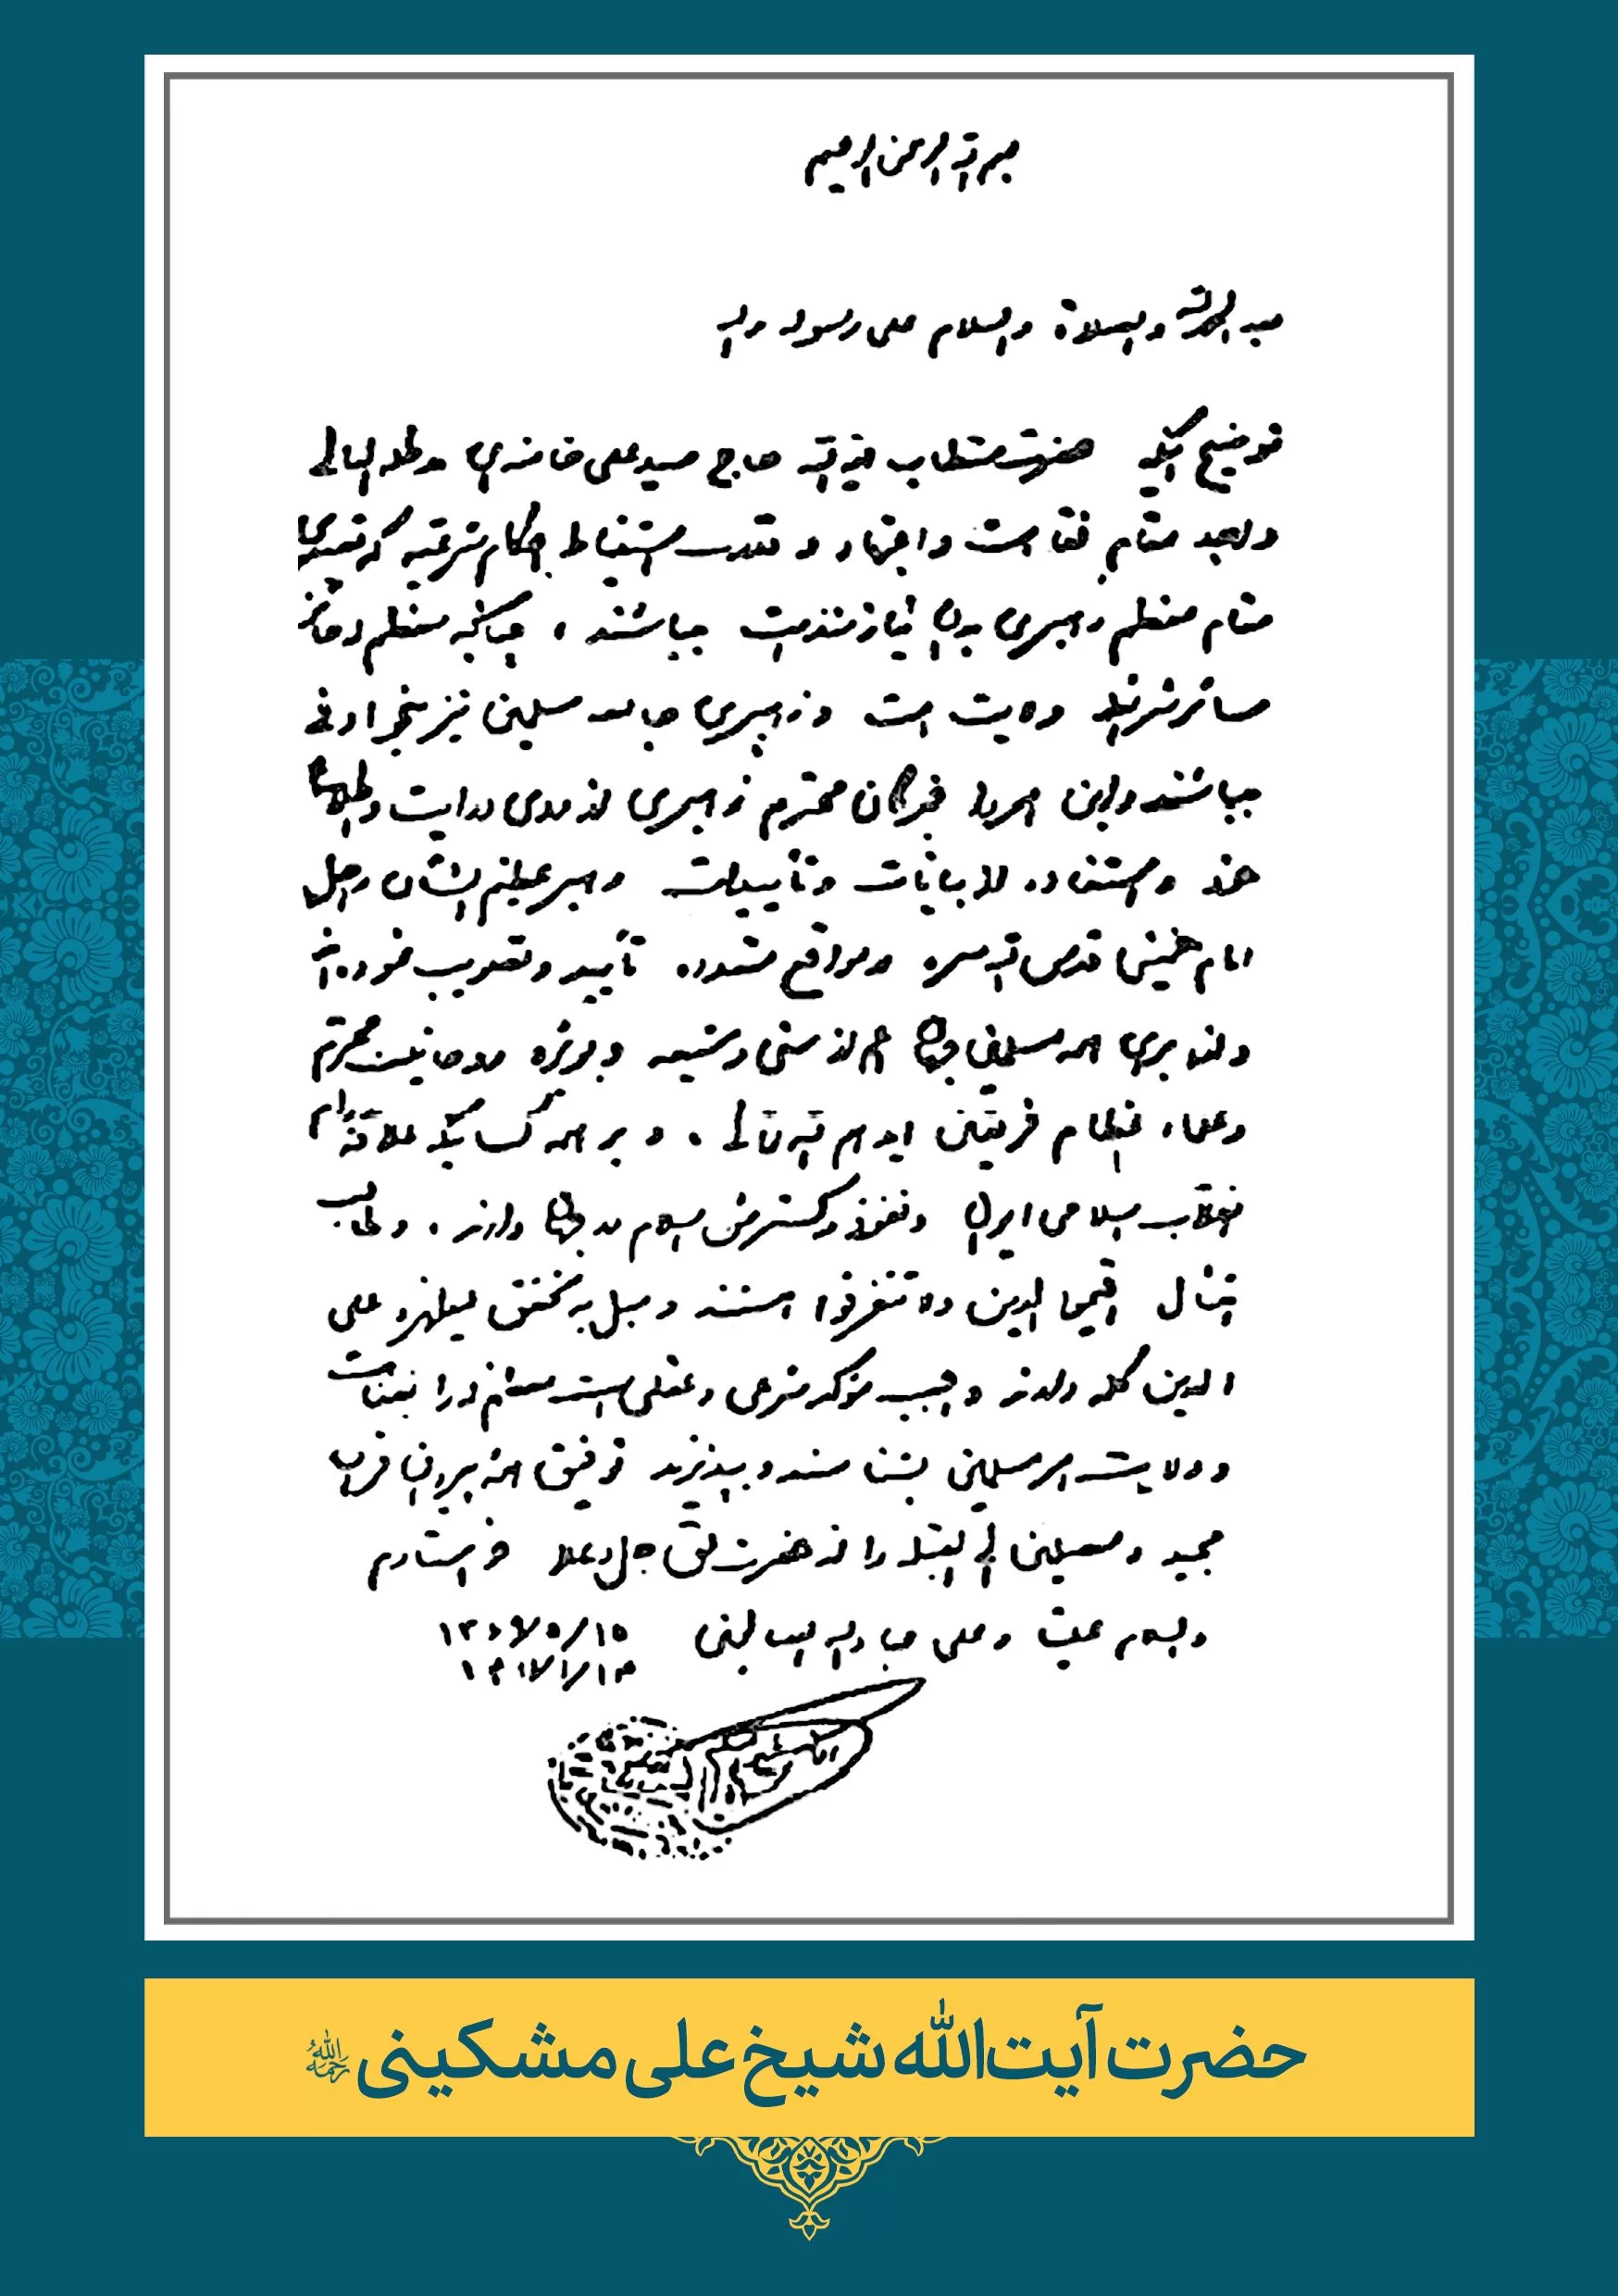 بسم الله الرحمن الرحیم
بعد الحمد لله والصلاة والسلام علی رسوله وآله
توضیح اینکه حضرت مستطاب آیة الله حاج سید علی خامنه‌ای مدظله العالی
واجد مقام فقاهت و اجتهاد و قدرت استنباط احکام شرعیه که تصدی
مقام معظم رهبری بدان نیازمند است میباشند، چنانکه معظم له حائز
سائر شرایط ولایت است و رهبری جامعه مسلمین نیز بنحو اوفی
میباشند و این امر را خبرگان محترم رهبری از روی درایت و اطلاعات
خود و استفاده از بیانات و تأییدات رهبر عظیم الشأن راحل
امام خمینی قدس الله سره در مواقع متعدده تأیید و تصویب نموده‌اند
ولذا برای همه مسلمانان جهان اعم از سنی و شیعه و بویژه روحانیت محترم
و علماء عظام فریقین ایدهم الله تعالی، و بر همه کسانیکه علاقه به دوام
انقلاب اسلامی ایران و نفوذ و گسترش اسلام در جهان دارند، و طالب
امتثال اقیموا الدین ولا تتفرقوا هستند و میل به تحقق لیظهره علی
الدین کله دارند واجب مؤکد شرعی و عقلی است معظم له را بعنوان
ولایت امر مسلمین بشناسند و بپذیرند توفیق همه پیروان قرآن
مجید و مصلین الی القبله را از حضرت حق جل و علا خواستارم
والسلام علیکم وعلی عباد الله الصالحین
حضرت آیت‌الله شیخ علی مشکینی رحمه‌الله